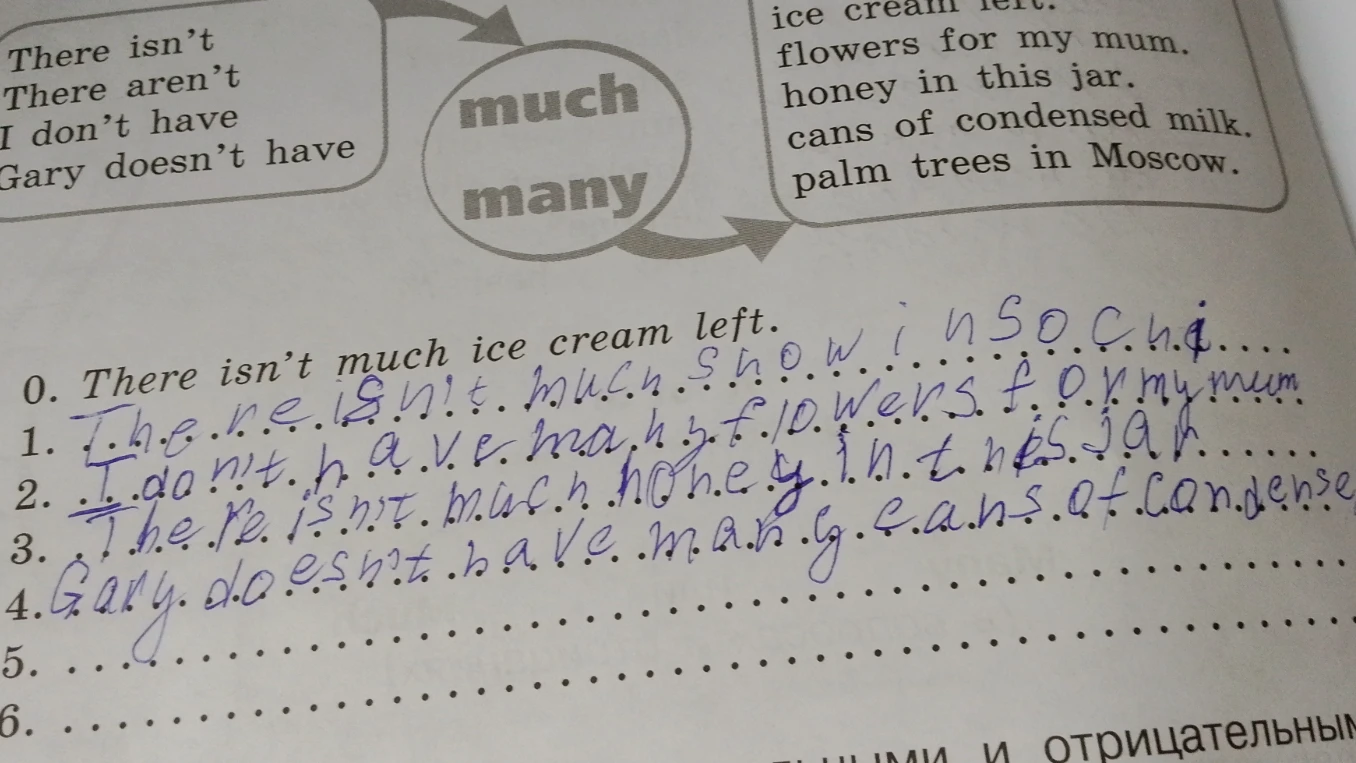 There isn't
There aren't
I don't have
Gary doesn't have
much
many
ice cream left.
flowers for my mum.
honey in this jar.
cans of condensed milk.
palm trees in Moscow.
0. There isn't much ice cream left.
1. There isn't much snow in Sochi
2. I don't have many flowers for my mum
3. There isn't much honey in this jar
4. Gary doesn't have many cans of condense
5.
6.
и отрицательным